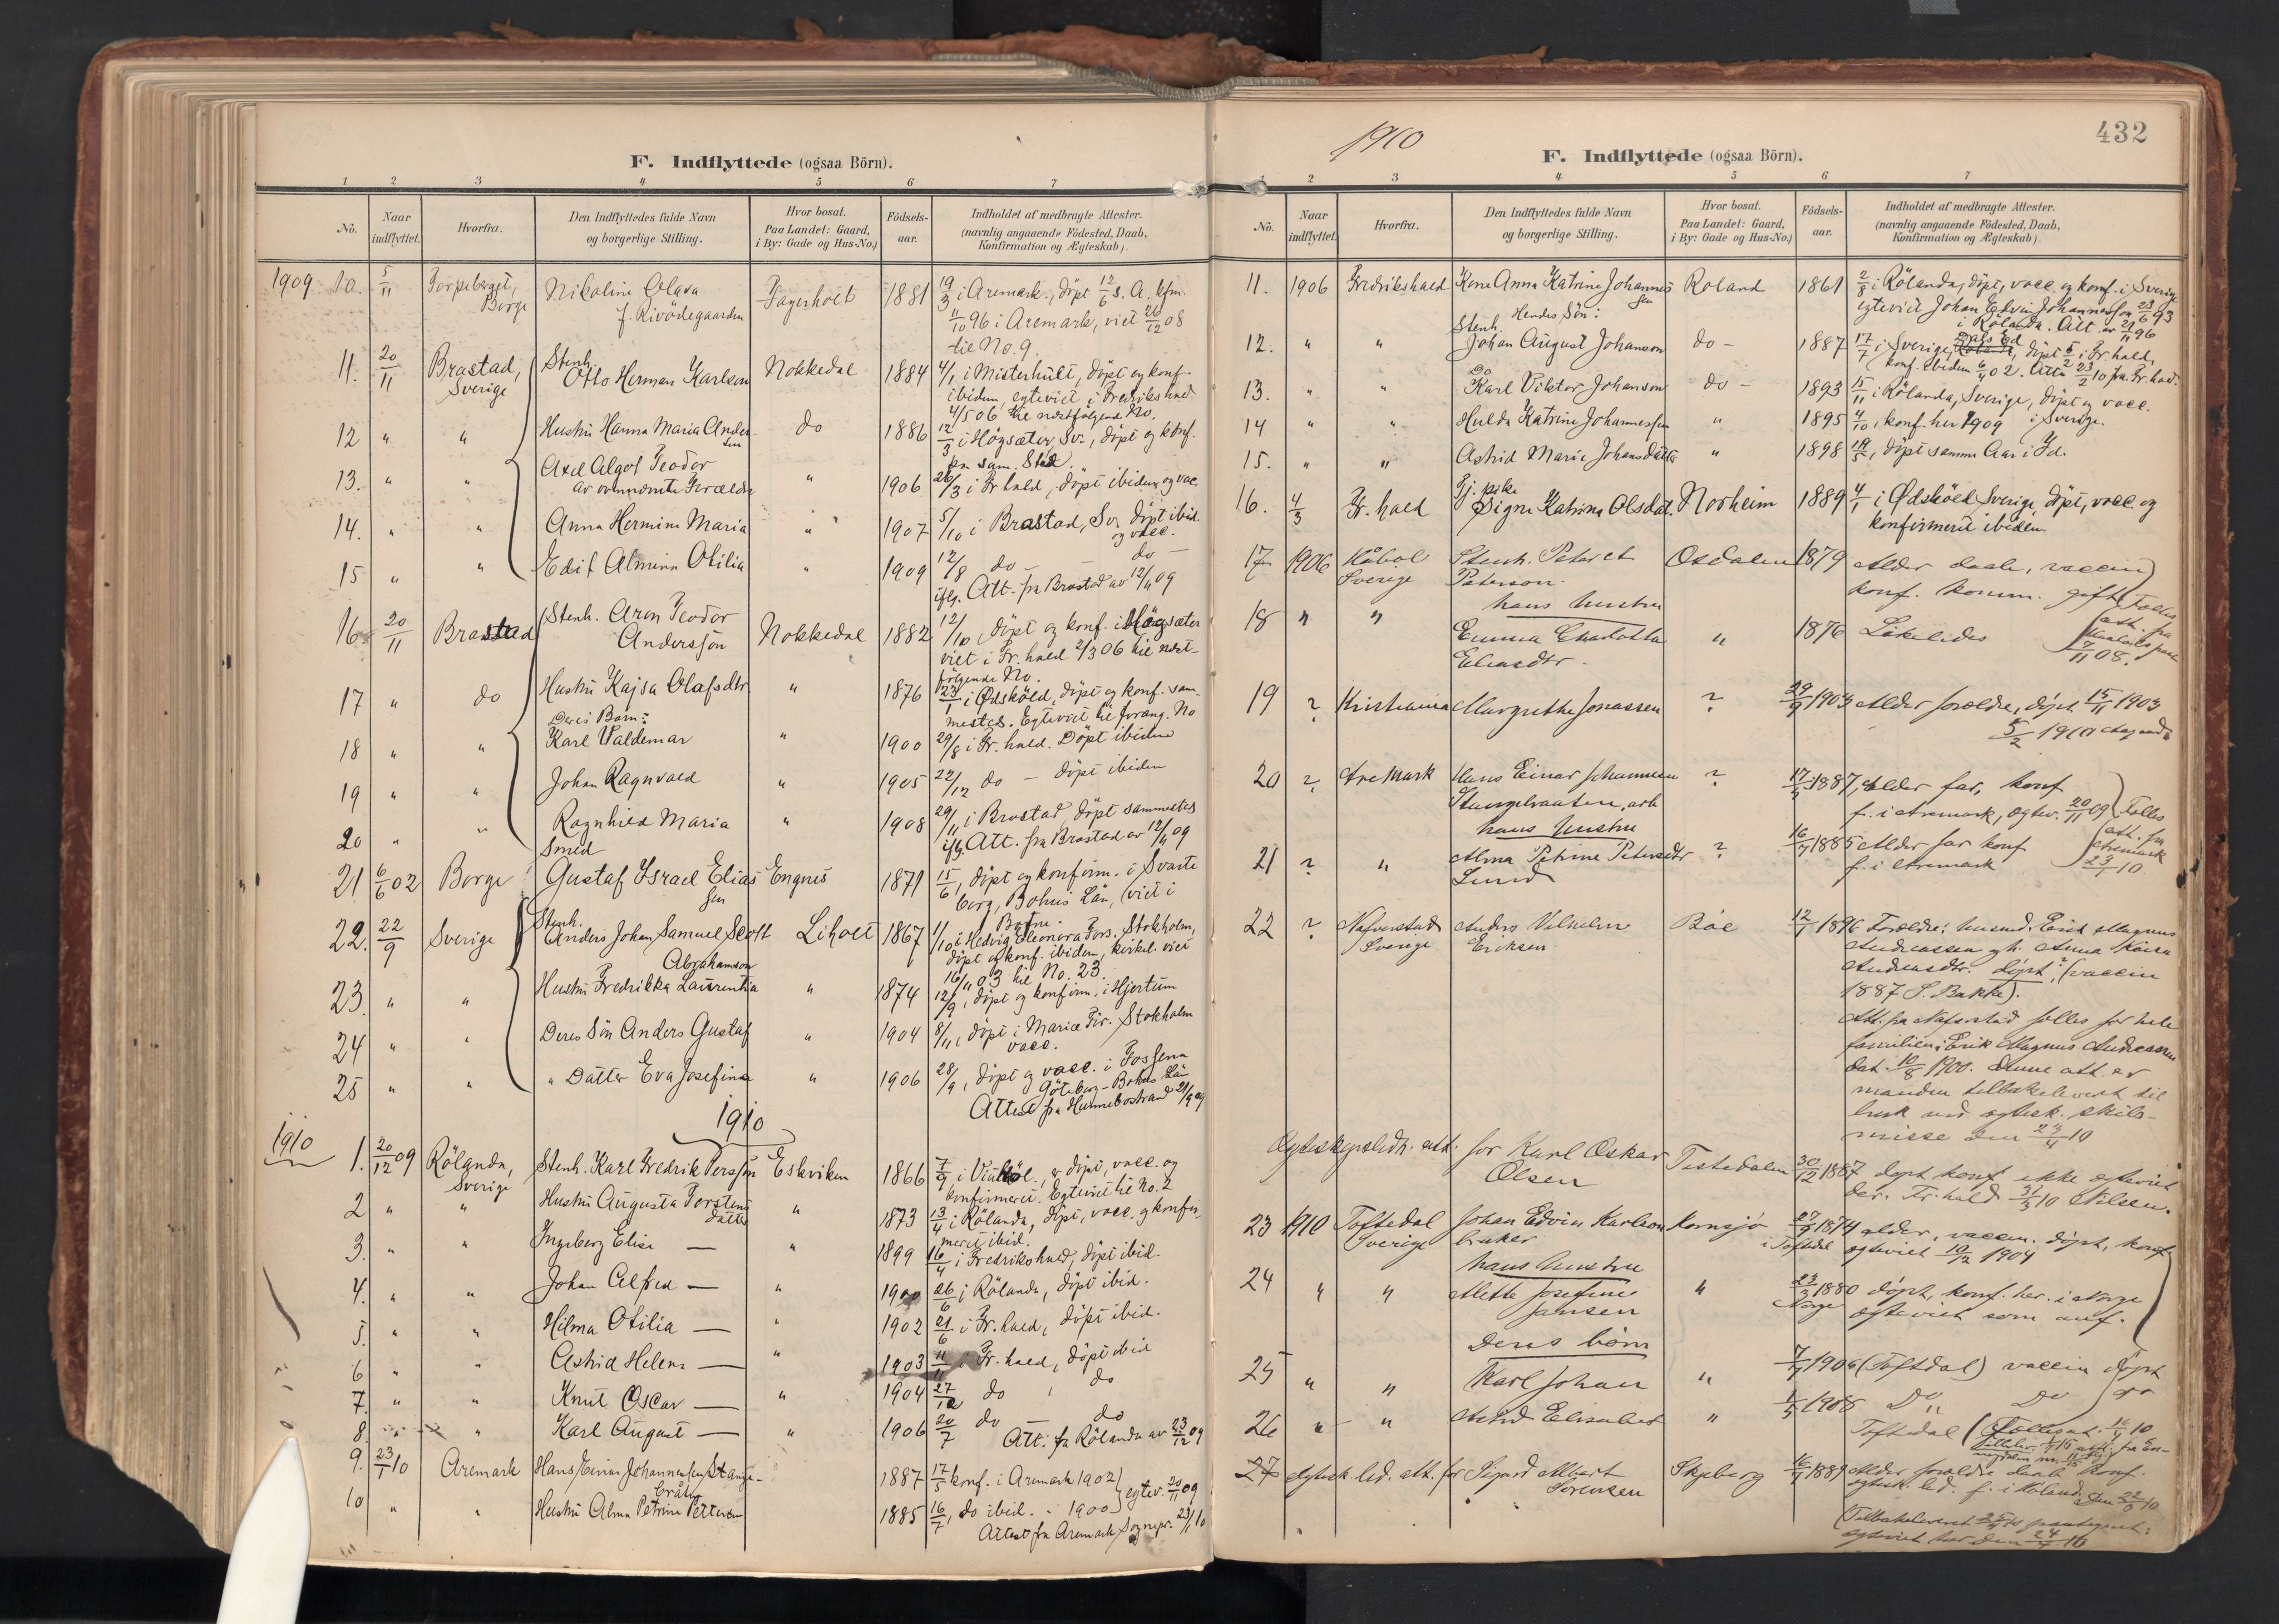 F. Indflyttede (ogsaa Börn).
1 2 3 4 5 6 7
No. Naar indflyttet. Hvorfra. Den Indflyttedes fulde Navn og borgerlige Stilling. Hvor bosat. Paa Landet: Gaard, i By: Gade og Hus-No.) Födsels-aar. Indholdet af medbragte Attester. (navnlig angaaende Födested, Daab, Konfirmation og Ægteskab).
1909 10. 5/11 Torpeberget, Borge Nikoline Olava Fagerholt 1881 19/3 i Aremark, döpt 12/6 s. A. kfm.
f. Rivödegaarden 11/10 96 i Aremark, viet 26/12 08
til No. 9.
11. 20/11 Brastad, Sverige Stenh. Otto Herman Karlson Nokkedal 1884 4/1 i Misterhult, döpt og konf.
ibidem, egteviet i Fredrikshald
4/5 06 til næstfölgende No.
12 " " Hustru Hanna Maria Andersen do 1886 12/3 i Högsæter, Sv., döpt og konf.
paa sam. Sted.
13. " " Axel Algot Teodor " 1906 26/3 i Fr.hald, döpt ibidem og vac.
av ovennævnte Forældre
14. " " Anna Hermine Maria " 1907 5/10 i Brastad, Sv. döpt ibid.
og vacc.
15 " " Edit Almina Otilia " 1909 12/8 do — do —
iflg. Att. fra Brastad av 12/11 09
16 20/11 Brastad Stenh. Aron Teodor Andersson Nokkedal 1882 12/10, döpt og konf. i Högsæter
viet i Fr.hald 2/3 06 til næst-
fölgende No.
17 " do Hustru Kajsa Olafsdtr " 1876 23/1 i Ödsköld, döpt og konf. sam-
mesteds. Egteviet til forang. No
Deres Barn:
18 " " Karl Valdemar " 1900 29/8 i Fr.hald. Döpt ibidem
19 " " Johan Ragnvald " 1905 22/12 do — döpt ibidem
20 " " Ragnhild Maria " 1908 29/11 i Brastad, döpt sammesteds
iflg. Att. fra Brastad av 12/11 09
Smed
21 6/6 02 Borge Gustaf Israel Eliassen Engnes 1871 15/6, döpt og konfirm. i Svarte
borg, Bohus Län, (viet i
22. 22/9 Sverige Stenh. Anders Johan Samuel Scott Abrahamson Liholt 1867 1/10 i Hedvig Eleonora Fors. Stokholm,
döpt og konf. ibidem, kirkel. viet
16/11 03 til No. 23.
23 " " Hustru Fredrikka Laurentia " 1874 12/9, döpt og konfirm. i Hjertum
24 " " Deres Sön Anders Gustaf " 1904 8/11, döpt i Maria För. Stokholm
vacc.
25 " " " Datter Eva Josefina " 1906 28/9, döpt og vacc. i Fossena
Göteborg-Bohus Län
Attest fra Hunnebostrand 21/9 09
1910
1910 1. 20/12 09 Rölanda, Sverige Stenh. Karl Fredrik Persson Eskviken 1866 7/9 i Vinköl, döpt, vacc. og
konfirmeret. Egteviet til No. 2
2 " " Hustru Augusta Torstensdatter " 1873 13/4 i Rölanda, döpt, vacc. og konfir-
meret ibid.
3. " " Ingeborg Elise — " 1899 16/4 i Fredrikshald, döpt ibid.
4. " " Johan Alfred — " 1900 26/6 i Rölanda, döpt ibid.
5. " " Hilma Otilia — " 1902 21/6 i Fr.hald, döpt ibid.
6 " " Astrid Helena — " 1903 11/11 i Fr.hald, döpt ibid
7. " " Knut Oscar — " 1904 27/12 do do
8. " " Karl August — " 1906 20/7 do — do
Att. fra Rölanda av 23/12 09
9. 23/1 10 Aremark Hans Einar Johannessen Stange-bråten 1887 17/5 konf. i Aremark 1902 } egtev. 20/11 09
10 " " Hustru Alma Petrine Pettersen 1885 16/7, do ibid. - 1900
Attest fra Aremark Sognepr. 23/1 10
432
1910
F. Indflyttede (ogsaa Börn).
1 2 3 4 5 6 7
No. Naar indflyttet. Hvorfra. Den Indflyttedes fulde Navn og borgerlige Stilling. Hvor bosat. Paa Landet: Gaard, i By: Gade og Hus-No.) Födsels-aar. Indholdet af medbragte Attester. (navnlig angaaende Födested, Daab, Konfirmation og Ægteskab).
11. 1906 Fredrikshald Kone Anna Katrine Johannessen Roland 1861 2/8 i Rölanda, döpt, vacc. og konf. i Sverige
egteviet Johan Edvin Johannesson 23/6 93
i Rölanda. Att. av 21/11 96
Hendes Sön:
12. " " Stenh. Johan August Johanson do - 1887 17/7 i Sverige, döpt 5/2 i Fr.hald,
konf. ibidem 6/4 02. Att. 23/2 10 fra Fr.hald.
13. " " Do Karl Viktor Johanson do - 1893 15/11 i Rölanda, Sverige, döpt og vacc.
14 " " Hulda Katrine Johannessen " 1895 4/10, konf. her 1909 i Sverige.
15. " " Astrid Marie Johansdatter " 1898 19/5, döpt samme Aar i Id.
16. 4/3 Fr.hald Tj.pike Signe Katrine Olsdat. Norheim 1889 4/1 i Ødsköld Sverige, döpt, vacc. og
konfirmeret ibidem
17 1906 Håbol Sverige Stenh. Peter et Peterson. Osdalen 1879 Alder daab, vaccin
konf. komm. gift
hans hustru
18 " " Emma Charlotta Eliasdtr. " 1876 Likeledes
Fælles att. fra 7/11 08.
19 ? Kristiania Margrethe Jonassen ? 29/9 1903 Alder forældre, döpt 15/11 1903
5/2 1910
20 ? Aremark Hans Einar Johannesen Stangebraaten, arb ? 17/5 1887, Alder far, konf
f. i Aremark, egtev. 20/11 09
hans hustru
21 ? " Alma Petrine Petersdtr Lund ? 16/7 1885 Alder far konf.
f. i Aremark
Fælles att. fra Aremark 23/1 10
22 ? Nafverstad Sverige Anders Vilhelm Eriksen Böe 12/1 1896 Forældre: husmd. Erik Magnus
Andreassen og h. Anna Kaisa
Andreasdtr. döpt, (vaccin
1887 S. Bakke).
Att. fra Nafverstad fælles for hele
familien: Erik Magnus Andreassen
dat. 10/8 1900. Denne att. er
manden tilbakelevert til
bruk ved egtesk. skils-
misse den 23/4 10
Egteskapsledn. att. for Karl Oskar Olsen Tistedalen 30/12 1887 döpt konf ikke egteviet
her. Fr.hald 31/3 10 Nilsen.
23 1910 Töftedal Sverige Johan Edvin Karlson bruker Kornsjö 27/9 1874 i Töftedal alder, vaccin. döpt, konf
egteviet 10/12 1904
hans hustru
24 " " Mette Josefine Jansen " 23/3 1880 Norge döpt, konf. her. i Norge
egteviet som anf.
Deres börn
25 " " Karl Johan " 7/7 1906 (Töftedal) vaccin döpt
26 " " Astrid Elisabet " 1/5 1908 Do Do do
Töftedal
27 Egtesk. led. att. for Sigurd Albert Sorensen Skjeberg 16/9 1889 Alder forældre daab konf.
egtesk. led. f. i Roland. Den 22/3 10